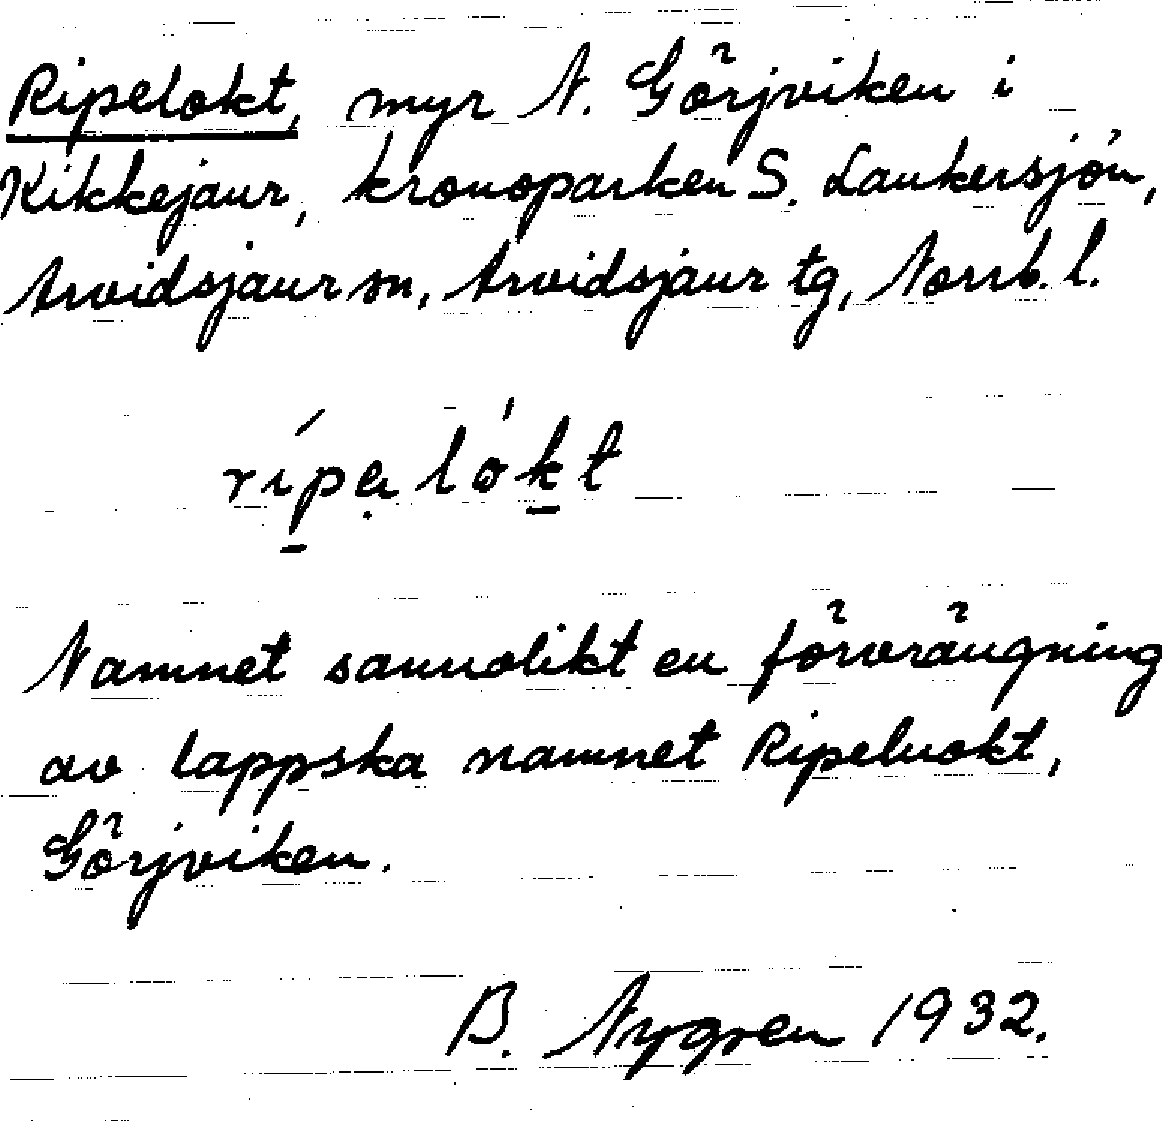 Ripelokt, myr N. Görjviken i
Kikkejaur, kronoparken S. Laukersjön,
Arvidsjaur sn, Arvidsjaur tg, Norrb. l.
rípẹlókt
Namnet sannolikt en förvrängning
av lappska namnet Ripeluokt,
Görjviken.
B. Nygren 1932.